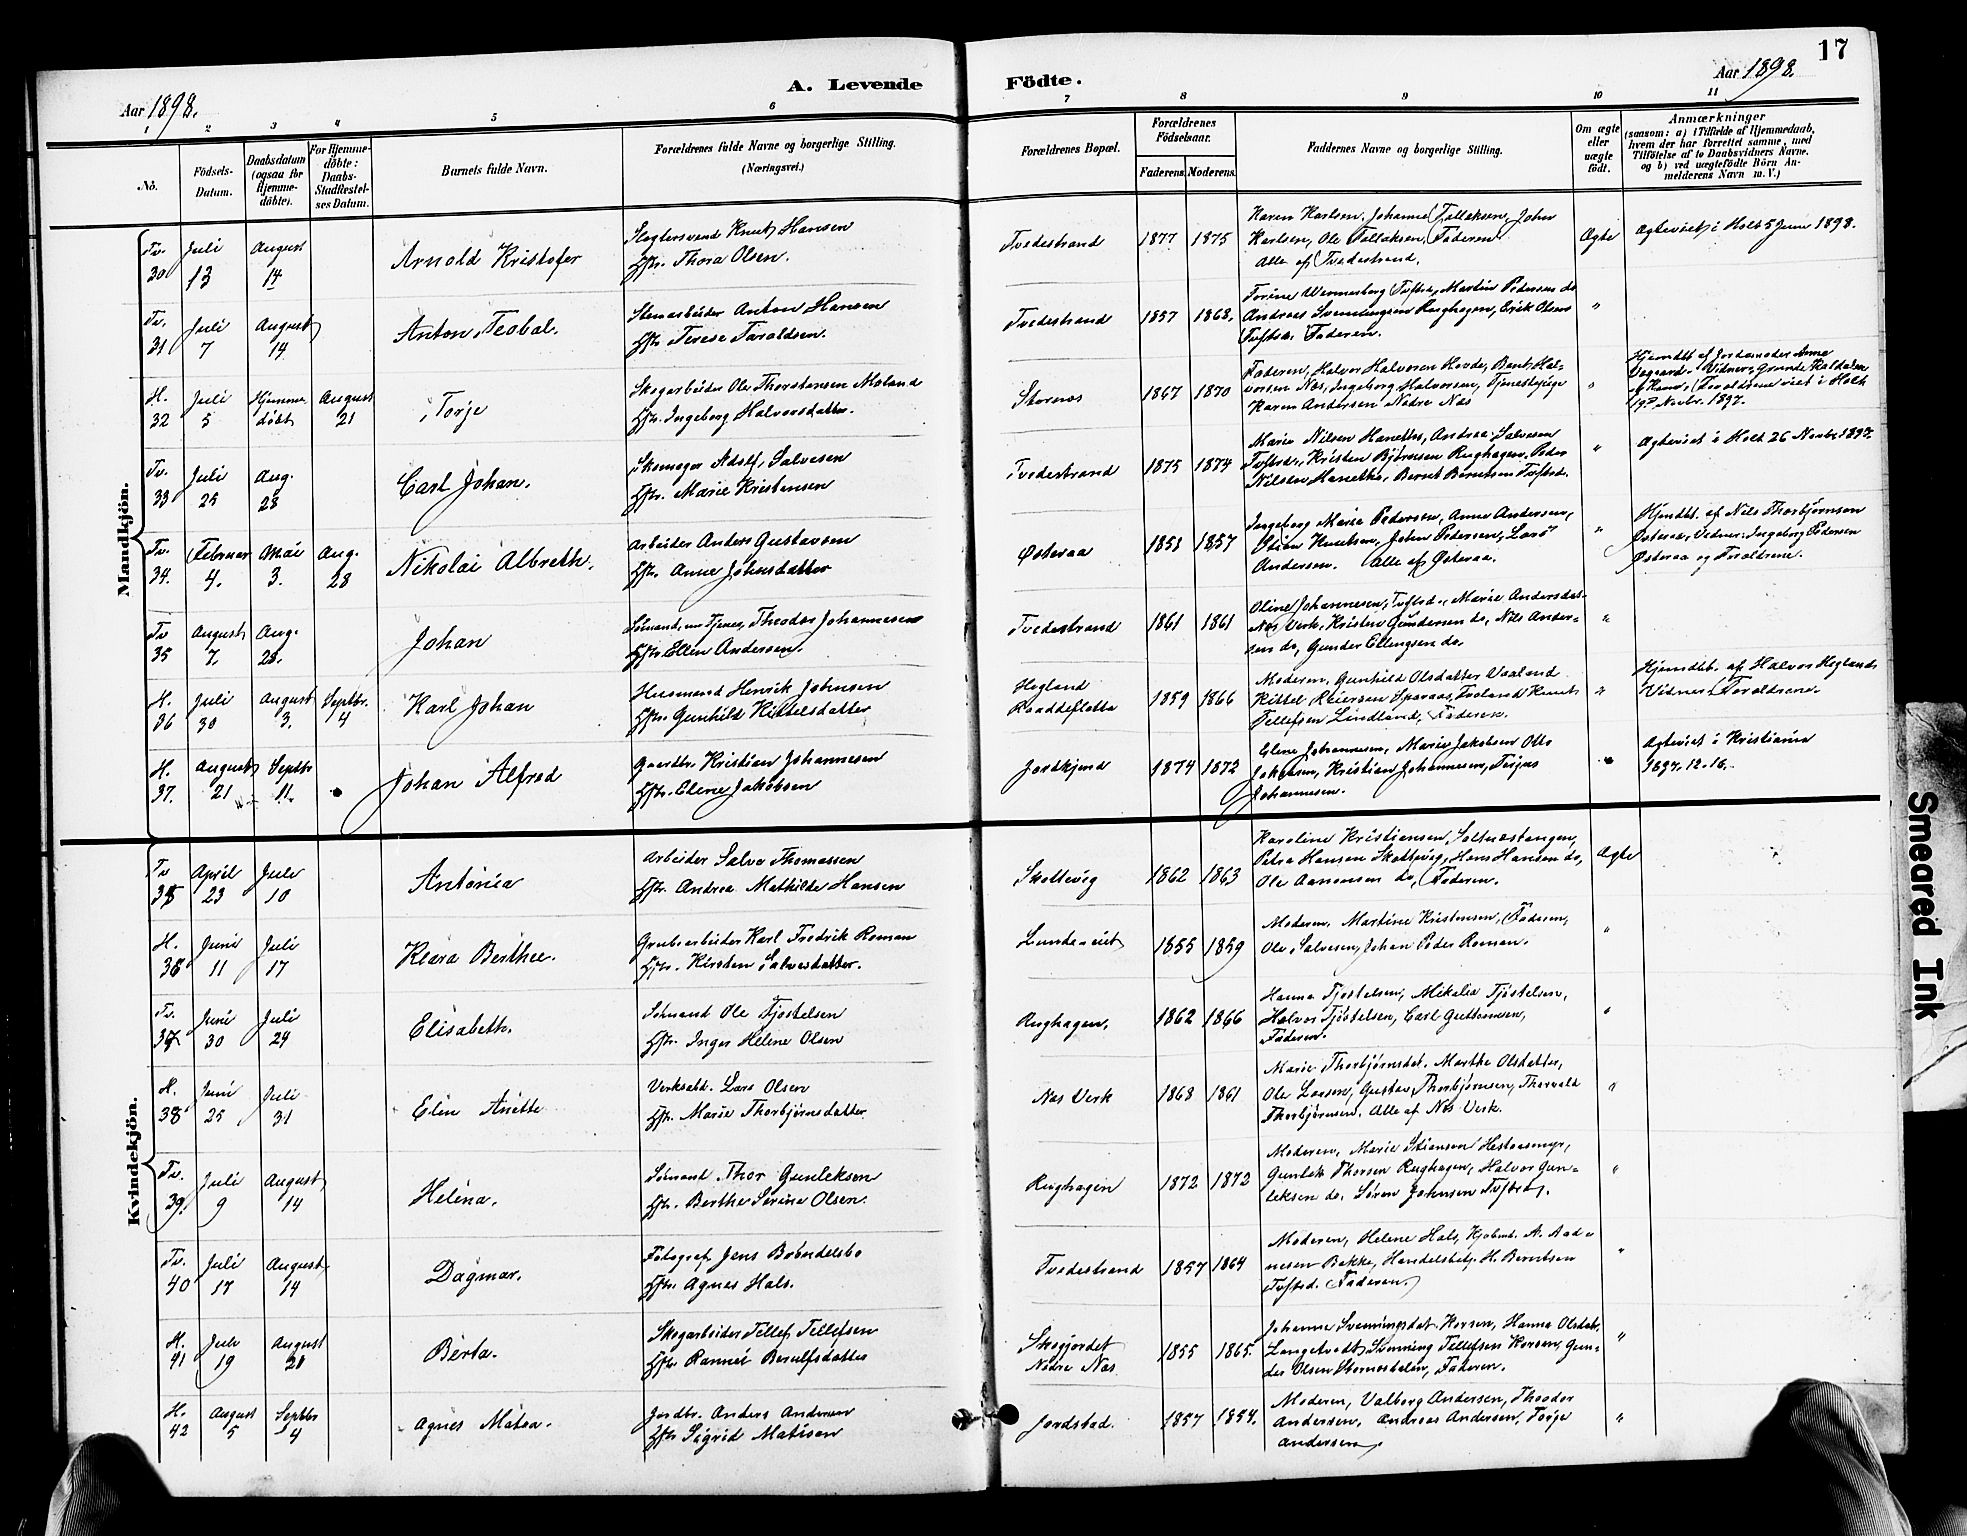 17
A. Levende Födte.
Aar 1898.
Aar 1898.
1 2 3 4 5 6 7 8 9 10 11
No.
Födsels-Datum.
Daabsdatum (ogsaa for Hjemme-döbte).
For Hjemme-döbte: Daabs-Stadfæstel-ses Datum.
Barnets fulde Navn.
Forældrenes fulde Navne og borgerlige Stilling.
(Næringsvei.)
Forældrenes Bopæl.
Forældrenes Födselsaar.
Faderens. Moderens.
Faddernes Navne og borgerlige Stilling.
Om ægte eller uægte født.
Anmærkninger
(saasom: a) i Tilfælde af Hjemmedaab,
hvem der har forrettet samme, med
Tilföielse af to Daabsvidners Navne.
og b) ved uægtefödte Börn An-
melderens Navn m. V.)
Mandkjön.
Tv. 30 Juli 13 August 14 Arnold Kristofer
Slagtersvend Knut Hansen
Hstr. Thora Olsen.
Tvedestrand 1877 1875
Karen Karlsen, Johanne Tallaksen, John
Karlsen, Ole Tallaksen, Faderen.
Alle af Tvedestrand.
Ægte
Ægteviet i Holt 5 Juni 1898.
Tv. 31 Juli 7 August 14 Anton Teobal.
Stenarbeider Anton Hansen
Hstr. Terese Taraldsen.
Tvedestrand 1857 1868.
Andreas Svenningsen Rughagen, Erik Olsen
Tvstra. Faderen.
"
H. 32 Juli 5 Hjemme døbt August 21 Torje
Skogarbeider Ole Thorstensen Moland
Hstr. Ingeborg Halvorsdatter.
Stornes 1867 1870
Faderen, Halvor Halvorsen Hovde, Bent Hal-
vorsen Nes, Ingeborg Halvorsen, Tjenestepige
Karen Andersen Nedre Nes
"
Hjemdbt. af Jordemoder Anne
Forældrene viet i Holt
19de Novbr. 1897.
Tv. 33 Juli 25 Aug. 28 Carl Johan.
Skomager Adolf Salvesen
Hstr. Marie Kristensen
Tvedestrand 1875 1874
Marie Nilsen Hanetho, Andrea Salvesen
Tvstra., Kristen Bjørnsen Rughagen, Peder
Nilsen Hanetho, Bernt Berntsen Tvstrd.
"
Ægteviet i Holt 26 Novbr. 1897.
Tv. 34. Februar 4. Mai 3. Aug. 28 Nikolai Albreth.
Arbeider Anders Gustavsen
Hstr. Anne Johnsdatter
Østeraa 1858 1857
Ingeborg Marie Pedersen, Anne Andersen,
Stian Knutsen, John Pedersen, Lars
Andersen. Alle af Østeraa.
"
Hjemdbt. af Nils Thorbjørnsen
Østeraa, Vidner: Ingeborg Pedersen
Østeraa og Forældrene.
Tv 35 August 7. Aug. 28. Johan
Sømand, Theodor Johannesen
Hstr. Ellen Andersen.
Tvedestrand 1861 1861
Oline Johannesen, Tvstrd., Marie Andersdat.
Nes Verk, Kristen Gundersen do, Nils Ander-
sen do, Gunder Ellingsen do.
"
H. 36 Juli 30 August 3. Septbr. 4 Karl Johan
Husmand Henrik Johnsen
Hstr. Gunhild Kittelsdatter
Hegland
1859 1866
Moderen, Gunhild Olsdatter Vaaland
Kittel Reiersen Sparaas, Froland Knut
Tellefsen Lindland, Faderen.
"
Hjemdbt. af Halvor Hegland
Vidner Forældrene.
H. 37. August 21 Septbr 11. Johan Alfred
Gaardbr. Kristian Johannesen
Hstr. Elene Jakobsen
Jordkjend 1874 1872
Elene Johannesen, Marie Jakobsen Otto
Jakobsen, Kristian Johannesen, Terjus
Johannesen.
"
Ægteviet i Kristiania
1897. 12. 16.
Kvindekjön.
Tv 35 April 23 Juli 10 Antonia
Arbeider Salve Thomassen
Hstr. Andrea Mathilde Hansen
Skottevig 1862 1863
Karoline Kristiansen, Saltnestangen,
Petra Hansen Skottevig, Hans Hansen do,
Ole Aanonsen do, Faderen.
Ægte
H. 36 Juni 11 Juli 17 Klara Berthee.
Grubearbeider Karl Fredrik Roman
Hstr. Kirsten Salvesdatter.
1855 1859
Moderen, Martine Kristensen, Faderen,
Ole Salvesen, Johan Peder Roman.
"
Tv. 37 Juni 30 Juli 24 Elisabeth.
Sømand Ole Tjøstelsen
Hstr. Inger Helene Olsen
Rughagen, 1862 1866
Hanna Tjøstelsen, Mikalia Tjøstelsen,
Halvor Tjøstelsen, Carl Guttormsen,
Faderen.
"
H. 38 Juni 25 Juli 31 Elin Anette
Verksarb. Lars Olsen
Hstr. Marie Thorbjørnsdatter
Nes Verk 1868 1861
Marie Thorbjørnsdat. Marthe Olsdatter,
Ole Larsen, Gustav Thorbjørnsen, Thorvald
Thorbjørnsen. Alle af Nes Verk.
"
Tv. 39. Juli 9 August 14 Helena.
Sømand Thor Gunleksen
Hstr. Berthe Serine Olsen.
Rughagen 1872 1872
Moderen, Marie Stiansen Hesteesmyr,
Gunlek Thorsen Rughagen, Halvor Gun-
leksen do. Søren Johnsen Tvstra.
"
Tv. 40 Juli 17 August 14 Dagmar.
Fotograf Jens Bøendelsbo
Hstr. Agnes Hals.
Tvedestrand 1857 1864
Moderen, Helene Hals, Kjøbmd. A. Aad-
nesen Bakke, Handelsbetj. H. Berntsen
Tvstrd. Faderen.
"
H. 41 Juli 19 August 21 Berta.
Skogarbeider Tellef Tellefsen
Hstr. Rannei Berulfsdatter
Skogjordet
Nedre Nes
1855 1865.
Johanne Svenningsdat. Korsen, Hanna Olsdat.
Langetvedt, Svenning Tellefsen Korsen, Gun-
der Olsen Stornesdalen, Faderen.
"
H. 42 August 5 Septbr 4 Agnes Matea.
Jordbr. Anders Andersen
Hstr Sigrid Matisen
Jordstad. 1857 1854.
Moderen, Valborg Andersen, Theodor
Andersen, Andreas Andersen, Torje
Andersen.
"
Smeared Ink